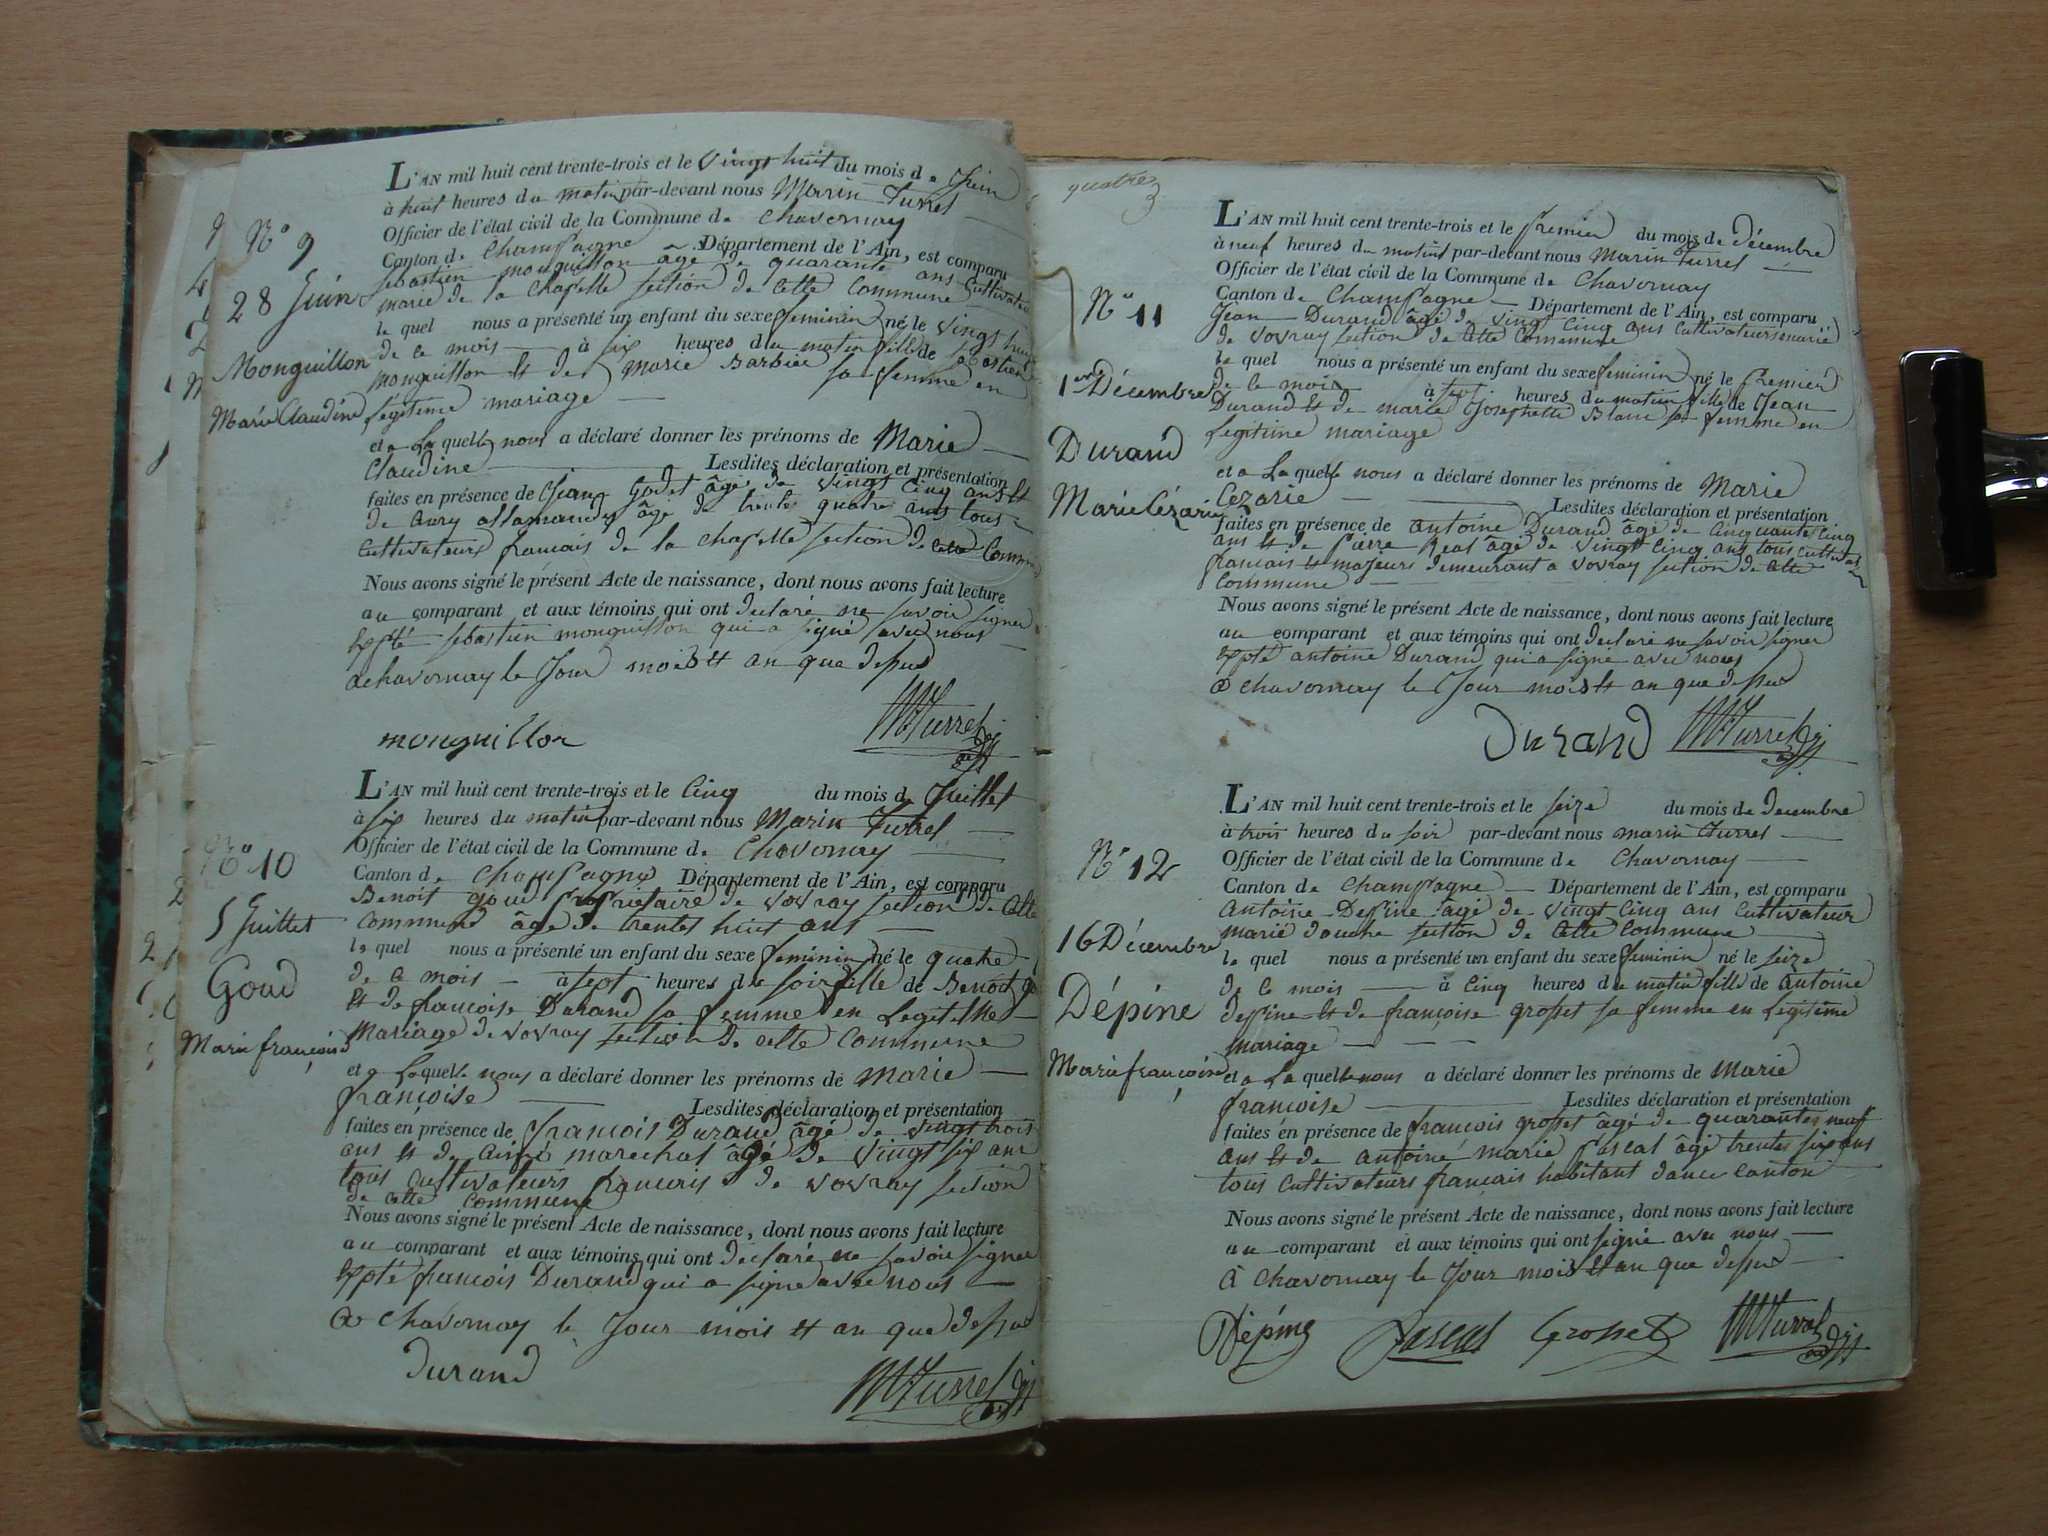 N° 9
28 Juin
Monguillon
Marie Claudine
L'AN mil huit cent trente-trois et le vingt huit du mois de Juin
à huit heures du matin par-devant nous Marin Turrel
Officier de l'état civil de la Commune de Chavornay
Canton de Champagne Département de l'Ain, est comparu
sebastien monguillon âgé de quarante ans Cultivateur
marié de la Chapelle section de cette Commune
le quel nous a présenté un enfant du sexe feminin né le vingt huit
de ce mois à six heures du matin fille de sebastien
monguillon et de Marie Barbier sa femme en
légitime mariage
et a laquelle nous a déclaré donner les prénoms de Marie
Claudine Lesdites déclaration et présentation
faites en présence de Jean Godet âgé de vingt cinq ans et
de allamand âgé de trente quatre ans tous
Cultivateurs francais de la chapelle section de cette Commune
Nous avons signé le présent Acte de naissance, dont nous avons fait lecture
au comparant et aux témoins qui ont declaré ne savoir signer
Expté sebastien monguillon qui a signé avec nous
a chavornay le Jour mois et an que dessus
monguillon MTurrel adjt
N° 10
5 Juillet
Goud
Marie françoise
L'AN mil huit cent trente-trois et le Cinq du mois de Juillet
à six heures du matin par-devant nous Marin Turrel
Officier de l'état civil de la Commune de Chavornay
Canton de Champagne Département de l'Ain, est comparu
Benoit goud propriétaire de vovray section de cette
Commune âgé de trente huit ans
le quel nous a présenté un enfant du sexe feminin né le quatre
de ce mois à sept heures du soir fille de Benoit
et de françoise Durand sa femme en Legitime
Mariage de vovray section de cette Commune
et a Laquelle nous a déclaré donner les prénoms de Marie
françoise Lesdites déclaration et présentation
faites en présence de françois Durand âgé de vingt trois
ans et de marechal âgé de vingt six ans
tous cultivateurs francais de vovray section
de cette commune
Nous avons signé le présent Acte de naissance, dont nous avons fait lecture
au comparant et aux témoins qui ont declaré ne savoir signer
Expté françois Durand qui a signé avec nous
a Chavornay le Jour mois et an que dessus
durand
MTurrel adjt
quatre
N° 11
1er Décembre
Durand
Marie Cézarie
L'AN mil huit cent trente-trois et le premier du mois de décembre
à neuf heures du matin par-devant nous Marin Turrel
Officier de l'état civil de la Commune de Chavornay
Canton de Champagne Département de l'Ain, est comparu
Jean Durand âgé de vingt cinq ans Cultivateur marié
de vovray section de cette Commune
le quel nous a présenté un enfant du sexe feminin né le premier
de ce mois à sept heures du matin fille de Jean
Durand et de marie Josephette Blanc sa femme en
Legitime mariage
et a Laquelle nous a déclaré donner les prénoms de Marie
Cezarie Lesdites déclaration et présentation
faites en présence de antoine Durand âgé de Cinquante cinq
ans et de pierre Reat âgé de vingt cinq ans tous
francais et majeurs demeurant a vovray section de cette
Commune
Nous avons signé le présent Acte de naissance, dont nous avons fait lecture
au comparant et aux témoins qui ont declaré ne savoir signer
Expté antoine Durand qui a signé avec nous
a chavornay le Jour mois et an que dessus
Durand MTurrel adjt
N° 12
16 Décembre
Dépine
Marie françoise
L'AN mil huit cent trente-trois et le seize du mois de decembre
à trois heures du soir par-devant nous marin Turrel
Officier de l'état civil de la Commune de Chavornay
Canton de Champagne Département de l'Ain, est comparu
antoine Depine âgé de vingt cinq ans Cultivateur
marié section de cette commune
le quel nous a présenté un enfant du sexe feminin né le seize
de ce mois à cinq heures du matin fille de antoine
depine et de françoise grosset sa femme en Légitime
mariage
et a La quelle nous a déclaré donner les prénoms de Marie
françoise Lesdites déclaration et présentation
faites en présence de françois grosset âgé de quarante neuf
ans et de antoine marie pascal âgé trente six ans
tous cultivateurs français habitant dance canton
Nous avons signé le présent Acte de naissance, dont nous avons fait lecture
au comparant et aux témoins qui ont signé avec nous
à Chavornay le Jour mois et an que dessus
Dépine pascal Grosset MTurrel adjt